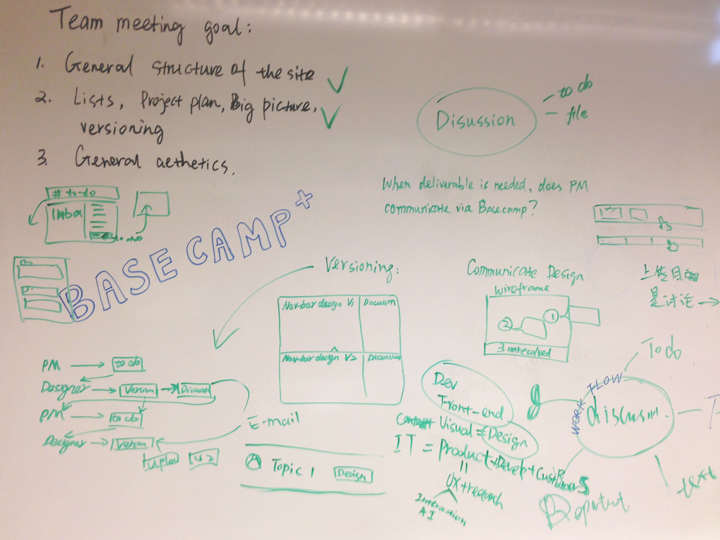 Team meeting goal:
1. General structure of the site
2. Lists, Project plan, Big picture,
versioning
3. General aethetics.
Disussion
to do
file
When deliverable is needed, does PM
communicate via Basecamp?
# to-do
Inbox
BASECAMP+
Versioning:
Nav-bar design V1
Discussion
Nav-bar design V2
Discussion
Communicate Design
wireframe
1
2
3 unresolved
PM
to do
Designer
Version
Discuss
PM
to do
Designer
Version
Upload
V2
E-mail
Topic 1
Design
Dev
Front-end
Content Visual = Design
IT = Product + Develop +
UX + research
Interaction
A I
WORK FLOW
discussion
To do
text
是讨论